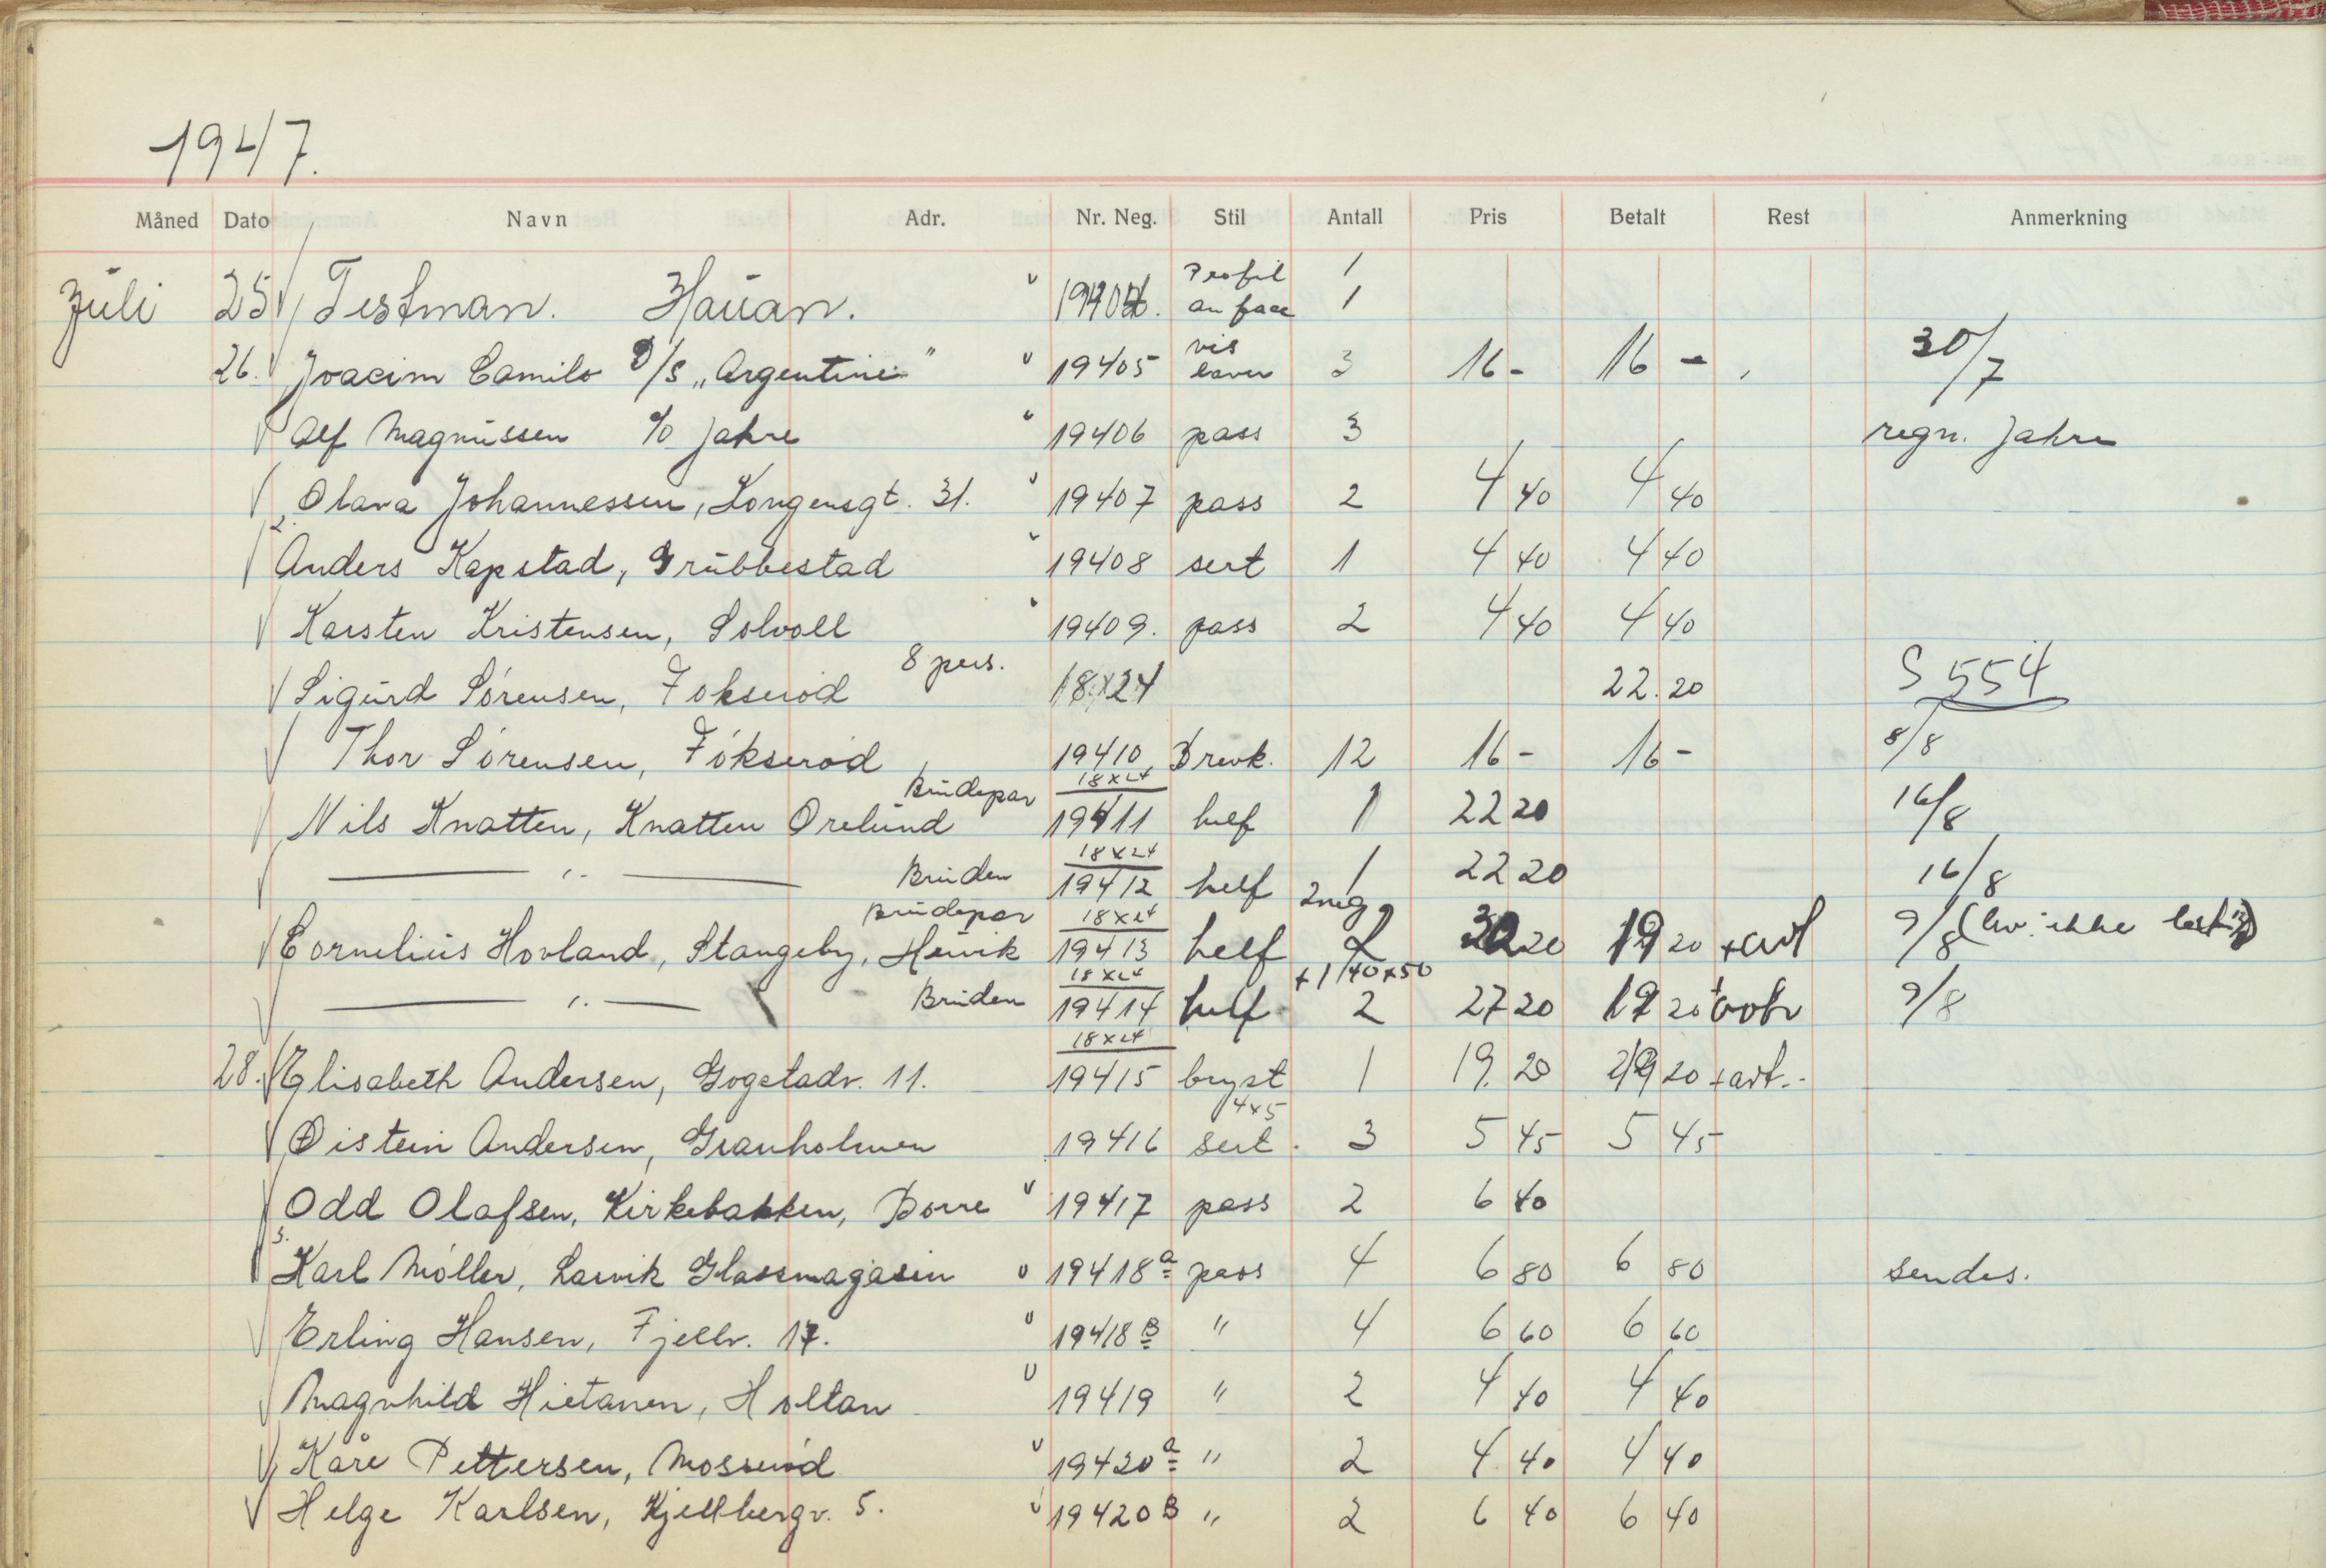 1947.
Måned Dato Navn Adr. Nr. Neg. Stil Antall Pris Betalt Rest Anmerkning
Juli 25 Testman. Hauan. " 19404. Profil 1
an face 1
26. Joacim Camilo D/S „Argentine" " 19405 vis 3 16 - 16 - 30/7
Alf Magnussen c/o Jahre " 19406 pass 3 regn. Jahre
Olava Johannessen, Kongensgt. 31. " 19407 pass 2 4 40 4 40
2.
Anders Kapstad, Grübbestad " 19408 sert 1 4 40 4 40
Karsten Kristensen, Solvoll " 19409. pass 2 4 40 4 40
Sigurd Sörensen, Fokseröd 8 pers. 18x24 22.20 S 554
Thor Sörensen, Fökseröd 19410 Brevk. 12 16 - 16 - 8/8
Nils Knatten, Knatten Orelund Brüdepar 18x24
19411 helf 1 22 20 16/8
— " — Brüden 18x24
19412 helf 1 22 20 16/8
Cornelius Hovland, Stangeby, Brüdepar 18x24 2 neg
19413 helf 20 19 20 9/8 ikke
+1 40x50
— " — Brüden 18x24
19414 helf 2 27 20 20 9/8
28. Elisabeth Andersen, Gogstadv. 11. 18x24
19415 bryst 1 19. 20 20
Øistein Andersen, Granholmen 19416 4x5
sert. 3 5 45 5 45
Odd Olafsen, Kirkebakken, Borre " 19417 pass 2 6 40
3.
Karl Möller, Larvik Glassmagasin " 19418a pass 4 6 80 6 80 sendes.
Erling Hansen, Fjellv. 17. " 19418B " 4 6 60 6 60
Magnhild Hietanen, Holtan " 19419 " 2 4 40 4 40
Kåre Pettersen, Mosseröd " 19420a " 2 4 40 4 40
Helge Karlsen, Kjellbergv. 5. " 19420B " 2 6 40 6 40